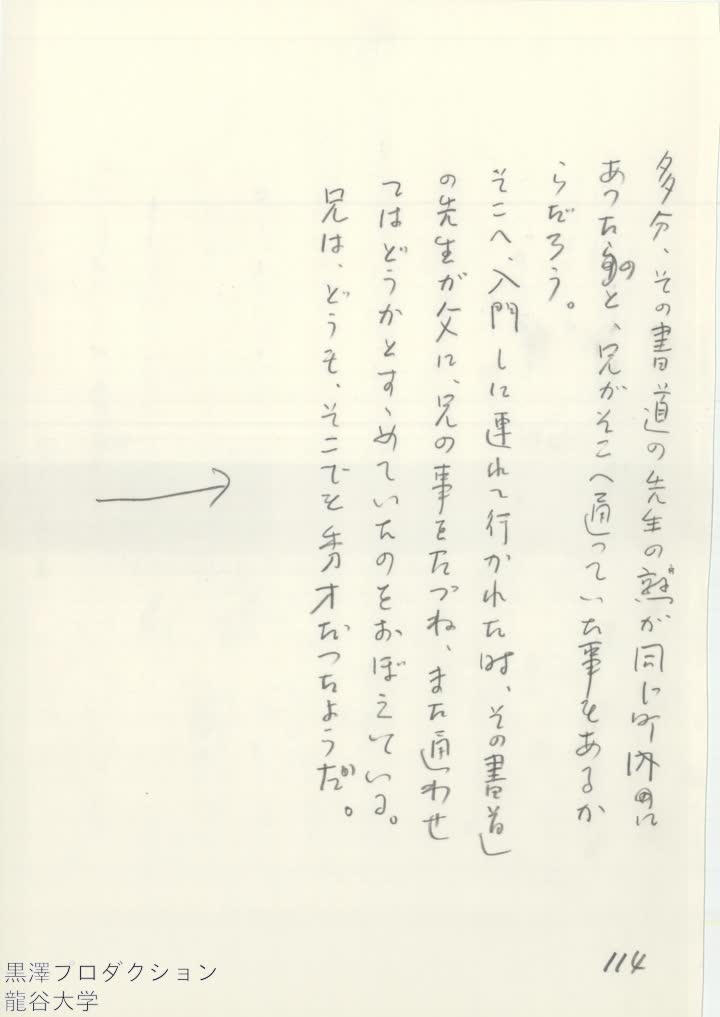 多分、その書道の先生の塾が同じ町内に
あったのと、兄がそこへ通っていた事もあるか
らだろう。
そこへ、入門しに連れて行かれた時、その書道
の先生が父に、兄の事をたづね、また通わせ
てはどうかとすゝめていたのをおぼえている。
兄は、どうも、そこでも秀才だったようだ。
114
黒澤プロダクション
龍谷大学